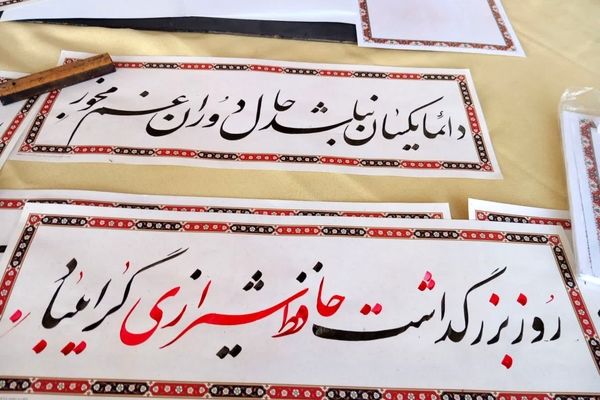 دائما یکسان نباشد حال دوران غم مخور
روز بزرگداشت حافظ شیرازی گرامیباد